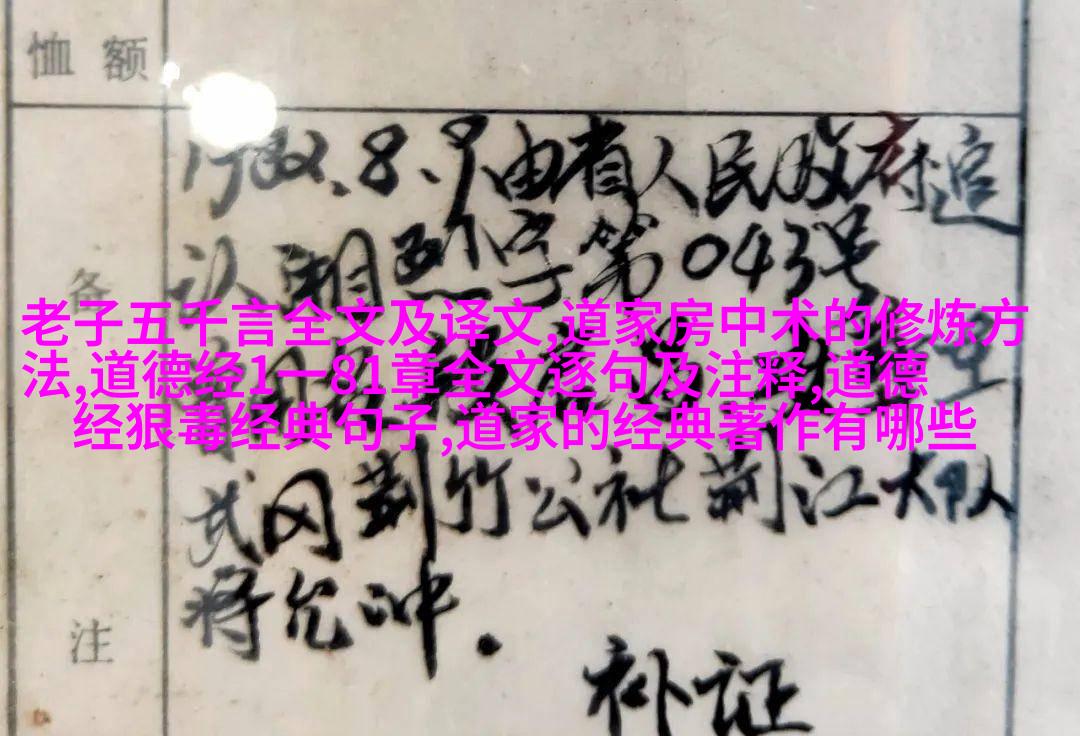 恤额
备
注
1982.8.9由省人民政府追
认湖烈字第043号
老子五千言全文及译文,道家房中术的修炼方
法,道德经1一81章全文逐句及注释,道德
经狠毒经典句子,道家的经典著作有哪些
武冈荆竹公社荆江大队
蒋允冲.
补证